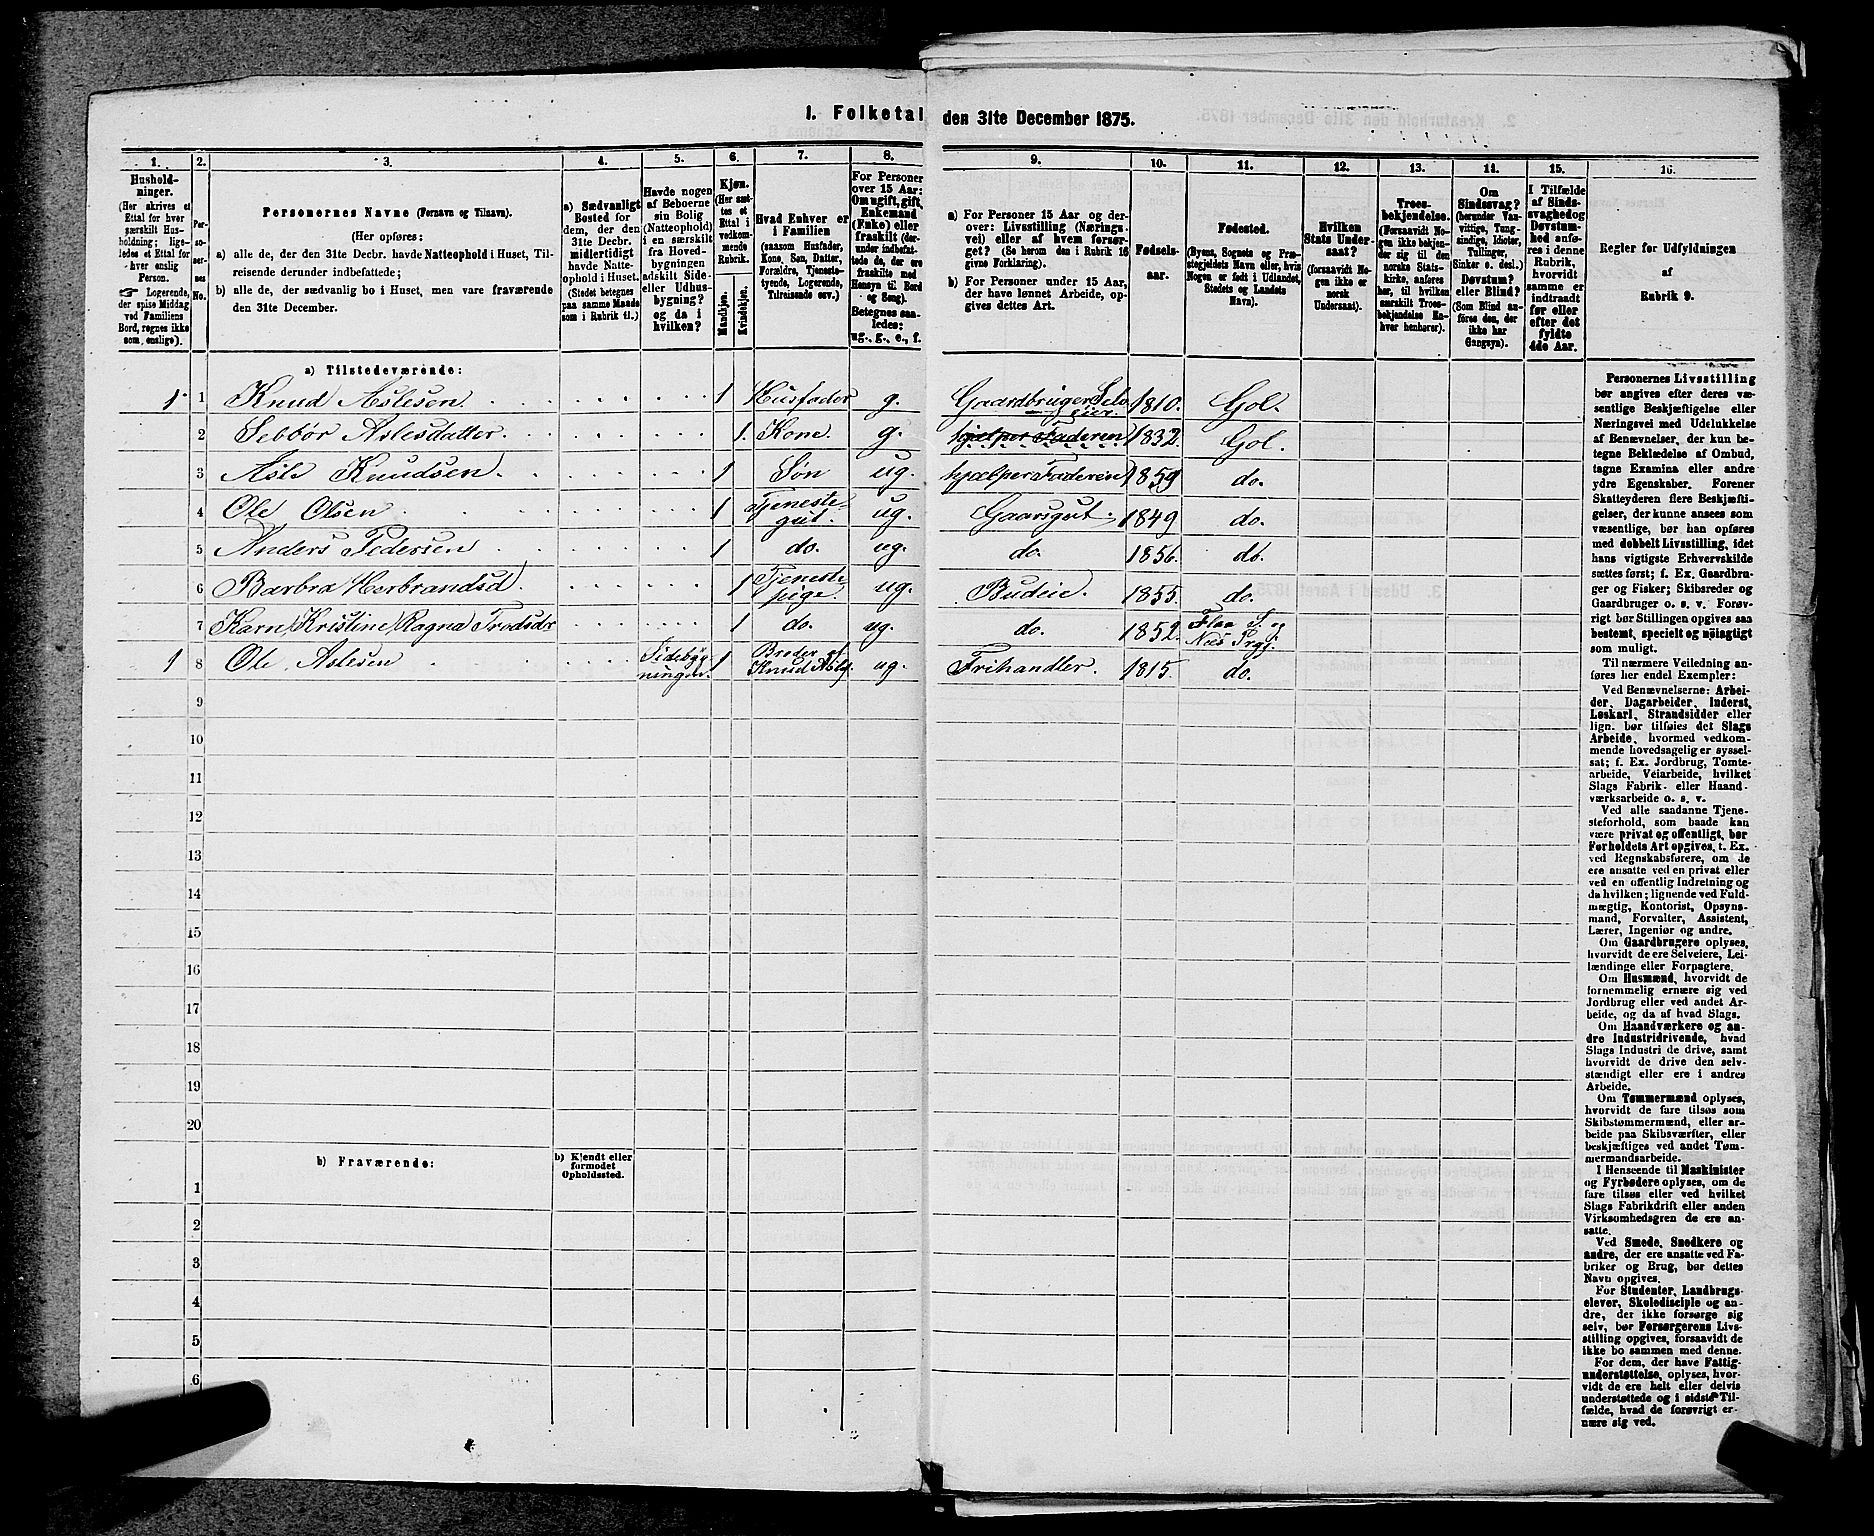 1. Folketal den 31te December 1875.
1. 2. 3. 4. 5. 6. 7. 8. 9. 10. 11. 12. 13. 14. 15. 16.
Hushold-
ninger.
(Her skrives et
Ettal for hver
særskilt Hus-
holdning; lige-
ledes et Ettal for
hver enslig
Person.
☞ Logerende,
der spise Middag
ved Familiens
Bord, regnes ikke
som enslige).
Per-
so-
ner-
nes
No.
Personernes Navne (Fornavn og Tilnavn).
(Her opføres:
a) alle de, der den 31te Decbr. havde Natteophold i Huset, Til-
reisende derunder indbefattede;
b) alle de, der sædvanlig bo i Huset, men vare fraværende
den 31te December.
a) Sædvanligt
Bosted for
dem, der den
31te Decbr.
midlertidigt
havde Natte-
ophold i Huset.
(Stedet betegnes
paa samme Maade
som i Rubrik 11.)
Havde nogen
af Beboerne
sin Bolig
(Natteophold)
i en særskilt
fra Hoved-
bygningen
adskilt Side-
eller Udhus-
bygning?
og da i
hvilken?
Kjøn.
(Her sæt-
tes et
Ettal i
vedkom-
mende
Rubrik.
Mandkjøn.
Kvindekjøn.
Hvad Enhver er
i Familien
(saasom Husfader,
Kone, Søn, Datter,
Forældre, Tjeneste-
tyende, Logerende,
Tilreisende osv.)
For Personer
over 15 Aar:
Om ugift, gift,
Enkemand
(Enke) eller
fraskilt (der-
under indbefat-
tede de, der ere
fraskilte med
Hensyn til Bord
og Seng).
Betegnes saa-
ledes:
ug., g., e., f.
a) For Personer 15 Aar og der-
over: Livsstilling (Nærings-
vei) eller af hvem forsør-
get? (Se herom den i Rubrik 16
givne Forklaring).
b) For Personer under 15 Aar,
der have lønnet Arbeide, op-
gives dettes Art.
Fødsels-
aar.
Fødested.
(Byens, Sognets og Præ-
stegjeldets Navn eller, hvis
Nogen er født i Udlandet,
Stedets og Landets
Navn).
Hvilken
Stats Under-
saat?
(forsaavidt No-
gen ikke er
norsk
Undersaat).
Troes-
bekjendelse.
(Forsaavidt No-
gen ikke bekjen-
der sig til den
norske Stats-
kirke, anføres
her, til hvilken
særskilt Troes-
bekjendelse En-
hver henhører).
Om
Sindssvag?
(herunder Van-
vittige, Tung-
sindige, Idioter,
Tullinger,
Sinker o. desl.)
Døvstum?
eller Blind?
(Som Blind an-
føres den, der
ikke har
Gangsyn).
I Tilfælde
af Sinds-
svaghed og
Døvstum-
hed anfø-
res i denne
Rubrik,
hvorvidt
samme er
indtraadt
før eller
efter det
fyldte
4de Aar.
Regler for Udfyldningen
af
Rubrik 9.
a) Tilstedeværende:
1 1 Knud Aslesen 1 Husfader g. Gaardbruger Selv
eier. 1810. Gol.
2 Sebbør Aslesdatter. 1. Kone. g. hjælper Faderen 1832. Gol.
3 Asle Knudsen. 1 Søn ug. hjælper Faderen 1859 do.
4 Ole Olsen 1 Tjeneste-
gut. ug. Gaarsgut. 1849 do.
5 Anders Pedersen 1 do. ug. do. 1856. do.
6 Barbra Herbrandsd 1 Tjeneste
pige. ug. Budeie. 1855. do.
7 Karn Kristine Ragna Trodsdr 1 do. ug. do. 1852. Flaa S. og
Næs Prgj.
1 8 Ole Aslesen Sidebyg
ningen. 1 Broder af
Knud Asls. ug. Frihandler. 1815. do.
9
10
11
12
13
14
15
16
17
18
19
20
b) Fraværende:
b) Kjendt eller
formodet
Opholdssted.
1
2
3
4
5
6
Personernes Livsstilling
bør angives efter deres væ-
sentlige Beskjæftigelse eller
Næringsvei med Udelukkelse
af Benævnelser, der kun be-
tegne Beklædelse af Ombud,
tagne Examina eller andre
ydre Egenskaber. Forener
Skatteyderen flere Beskjæfti-
gelser, der kunne ansees som
væsentlige, bør han opføres
med dobbelt Livsstilling, idet
hans vigtigste Erhvervskilde
sættes først; f. Ex. Gaardbru-
ger og Fisker; Skibsreder og
Gaardbruger o. s. v. Forøv-
rigt bør Stillingen opgives saa
bestemt, specielt og nøiagtigt
som muligt.
Til nærmere Veiledning an-
føres her endel Exempler:
Ved Benævnelserne: Arbei-
der, Dagarbeider, Inderst,
Løskarl, Strandsidder eller
lign. bør tilføies det Slags
Arbeide, hvormed vedkom-
mende hovedsagelig er syssel-
sat; f. Ex. Jordbrug, Tomte-
arbeide, Veiarbeide, hvilket
Slags Fabrik- eller Haand-
værksarbeide o. s. v.
Ved alle saadanne Tjene-
steforhold, som baade kan
være privat og offentligt, bør
Forholdets Art opgives, t. Ex.
ved Regnskabsførere, om de
ere ansatte ved en privat eller
ved en offentlig Indretning og
da hvilken; lignende ved Fuld-
mægtig, Kontorist, Opsyns-
mand, Forvalter, Assistent,
Lærer, Ingeniør og andre.
Om Gaardbrugere oplyses,
hvorvidt de ere Selveiere, Lei-
lændinge eller Forpagtere.
Om Husmænd, hvorvidt de
fornemmelig ernære sig ved
Jordbrug eller ved andet Ar-
beide, og da af hvad Slags.
Om Haandværkere og an-
dre Industridrivende, hvad
Slags Industri de drive, samt
hvorvidt de drive den selv-
stændigt eller ere i andres
Arbeide.
Om Tømmermænd oplyses,
hvorvidt de fare tilsøs som
Skibstømmermænd, eller ar-
beide paa Skibsværfter, eller
beskjæftiges ved andet Tøm-
mermandsarbeide.
I Henseende til Maskinister
og Fyrbødere oplyses, om de
fare tilsøs eller ved hvilket
Slags Fabrikdrift eller anden
Virksomhedsgren de ere an-
satte.
Ved Smede, Snedkere og
andre, der ere ansatte ved Fa-
briker og Brug, bør dettes
Navn opgives.
For Studenter, Landbrugs-
elever, Skoledisciple og an-
dre, der ikke forsørge sig
selv, bør Forsørgerens Livs-
stilling opgives, forsaavidt de
ikke bo sammen med denne.
For dem, der have Fattig-
understøttelse, oplyses, hvor-
vidt de ere helt eller delvis
understøttede og i sidste Til-
fælde, hvad de forøvrigt er-
nære sig ved.